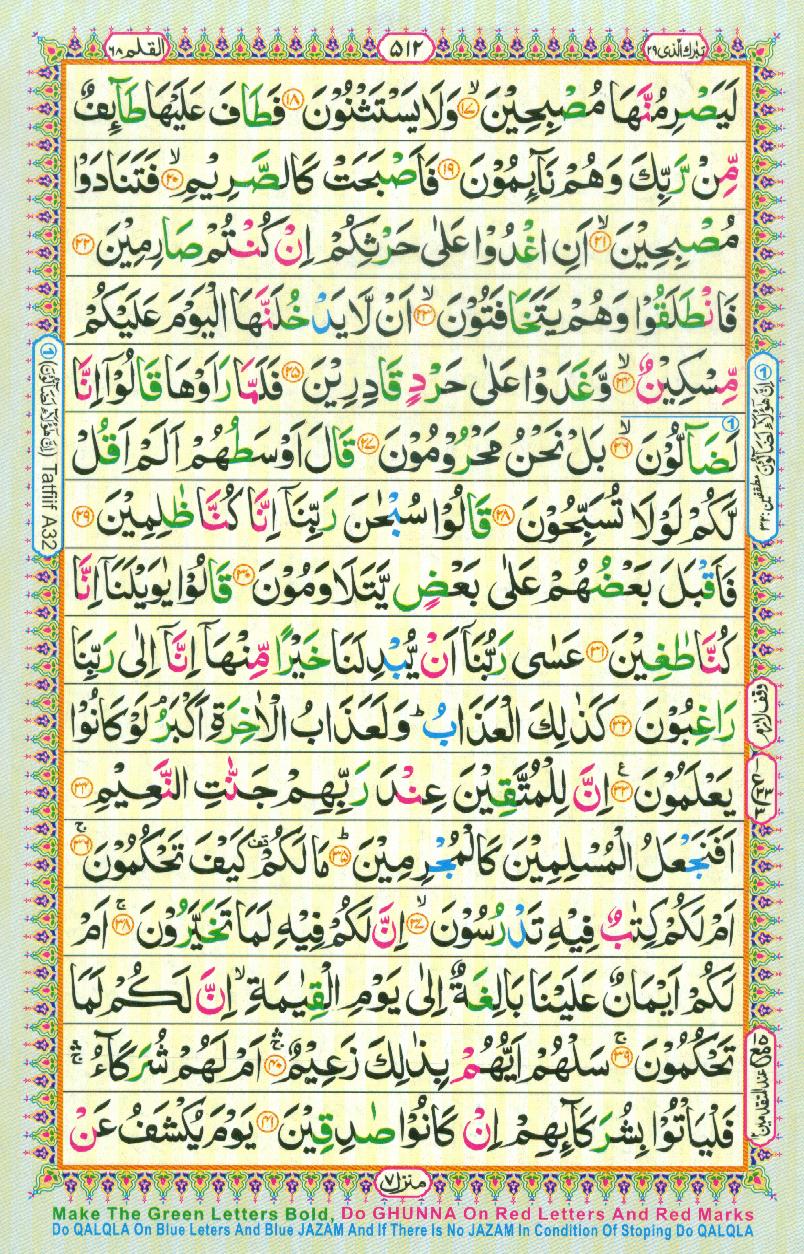 تبٰرك الّذی ۲۹
۵۱۲
القلم ۶۸
لَيَصْرِمُنَّهَا مُصْبِحِيْنَ ۙ‏﴿۱۷﴾ وَلَا يَسْتَثْنُوْنَ ﴿۱۸﴾ فَطَافَ عَلَيْهَا طَآئِفٌ
مِّنْ رَّبِّكَ وَهُمْ نَآئِمُوْنَ ﴿۱۹﴾ فَاَصْبَحَتْ كَالصَّرِيْمِ ۙ‏﴿۲۰﴾ فَتَنَادَوْا
مُصْبِحِيْنَ ۙ‏﴿۲۱﴾ اَنِ اغْدُوْا عَلٰى حَرْثِكُمْ اِنْ كُنْتُمْ صَارِمِيْنَ ﴿۲۲﴾
فَانْطَلَقُوْا وَهُمْ يَتَخَافَتُوْنَ ۙ‏﴿۲۳﴾ اَنْ لَّا يَدْخُلَنَّهَا الْيَوْمَ عَلَيْكُمْ
مِّسْكِيْنٌ ۙ‏﴿۲۴﴾ وَّغَدَوْا عَلٰى حَرْدٍ قَادِرِيْنَ ﴿۲۵﴾ فَلَمَّا رَاَوْهَا قَالُوْٓا اِنَّا
لَضَآلُّوْنَ ۙ‏﴿۲۶﴾ بَلْ نَحْنُ مَحْرُوْمُوْنَ ﴿۲۷﴾ قَالَ اَوْسَطُهُمْ اَلَمْ اَقُلْ
لَّكُمْ لَوْلَا تُسَبِّحُوْنَ ﴿۲۸﴾ قَالُوْا سُبْحٰنَ رَبِّنَآ اِنَّا كُنَّا ظٰلِمِيْنَ ﴿۲۹﴾
فَاَقْبَلَ بَعْضُهُمْ عَلٰى بَعْضٍ يَّتَلَاوَمُوْنَ ﴿۳۰﴾ قَالُوْا يٰوَيْلَنَآ اِنَّا
كُنَّا طٰغِيْنَ ﴿۳۱﴾ عَسٰى رَبُّنَآ اَنْ يُّبْدِلَنَا خَيْرًا مِّنْهَآ اِنَّآ اِلٰى رَبِّنَا
رَاغِبُوْنَ ﴿۳۲﴾ كَذٰلِكَ الْعَذَابُ ؕ وَلَعَذَابُ الْاٰخِرَةِ اَكْبَرُ ۘ لَوْ كَانُوْا
يَعْلَمُوْنَ ﴿۳۳﴾ اِنَّ لِلْمُتَّقِيْنَ عِنْدَ رَبِّهِمْ جَنّٰتِ النَّعِيْمِ ﴿۳۴﴾
اَفَنَجْعَلُ الْمُسْلِمِيْنَ كَالْمُجْرِمِيْنَ ؕ‏﴿۳۵﴾ مَا لَكُمْ ۥ كَيْفَ تَحْكُمُوْنَ ۚ‏﴿۳۶﴾
اَمْ لَكُمْ كِتٰبٌ فِيْهِ تَدْرُسُوْنَ ۙ‏﴿۳۷﴾ اِنَّ لَكُمْ فِيْهِ لَمَا تَخَيَّرُوْنَ ۚ‏﴿۳۸﴾ اَمْ
لَكُمْ اَيْمَانٌ عَلَيْنَا بَالِغَةٌ اِلٰى يَوْمِ الْقِيٰمَةِ ۙ اِنَّ لَكُمْ لَمَا
تَحْكُمُوْنَ ۚ‏﴿۳۹﴾ سَلْهُمْ اَيُّهُمْ بِذٰلِكَ زَعِيْمٌ ۚۛ‏﴿۴۰﴾ اَمْ لَهُمْ شُرَكَآءُ ۚۛ
فَلْيَاْتُوْا بِشُرَكَآئِهِمْ اِنْ كَانُوْا صٰدِقِيْنَ ﴿۴۱﴾ يَوْمَ يُكْشَفُ عَنْ
① اِنَّ هٰٓؤُلَآءِ لَضَآلُّوْنَ مطففين: ۳۲
وقف لازم
① (اِنَّ هٰٓؤُلَآءِ لَضَآلُّوْنَ) Tatfiif A32
منزل ۷
Make The Green Letters Bold, Do GHUNNA On Red Letters And Red Marks
Do QALQLA On Blue Leters And Blue JAZAM And If There Is No JAZAM In Condition Of Stoping Do QALQLA